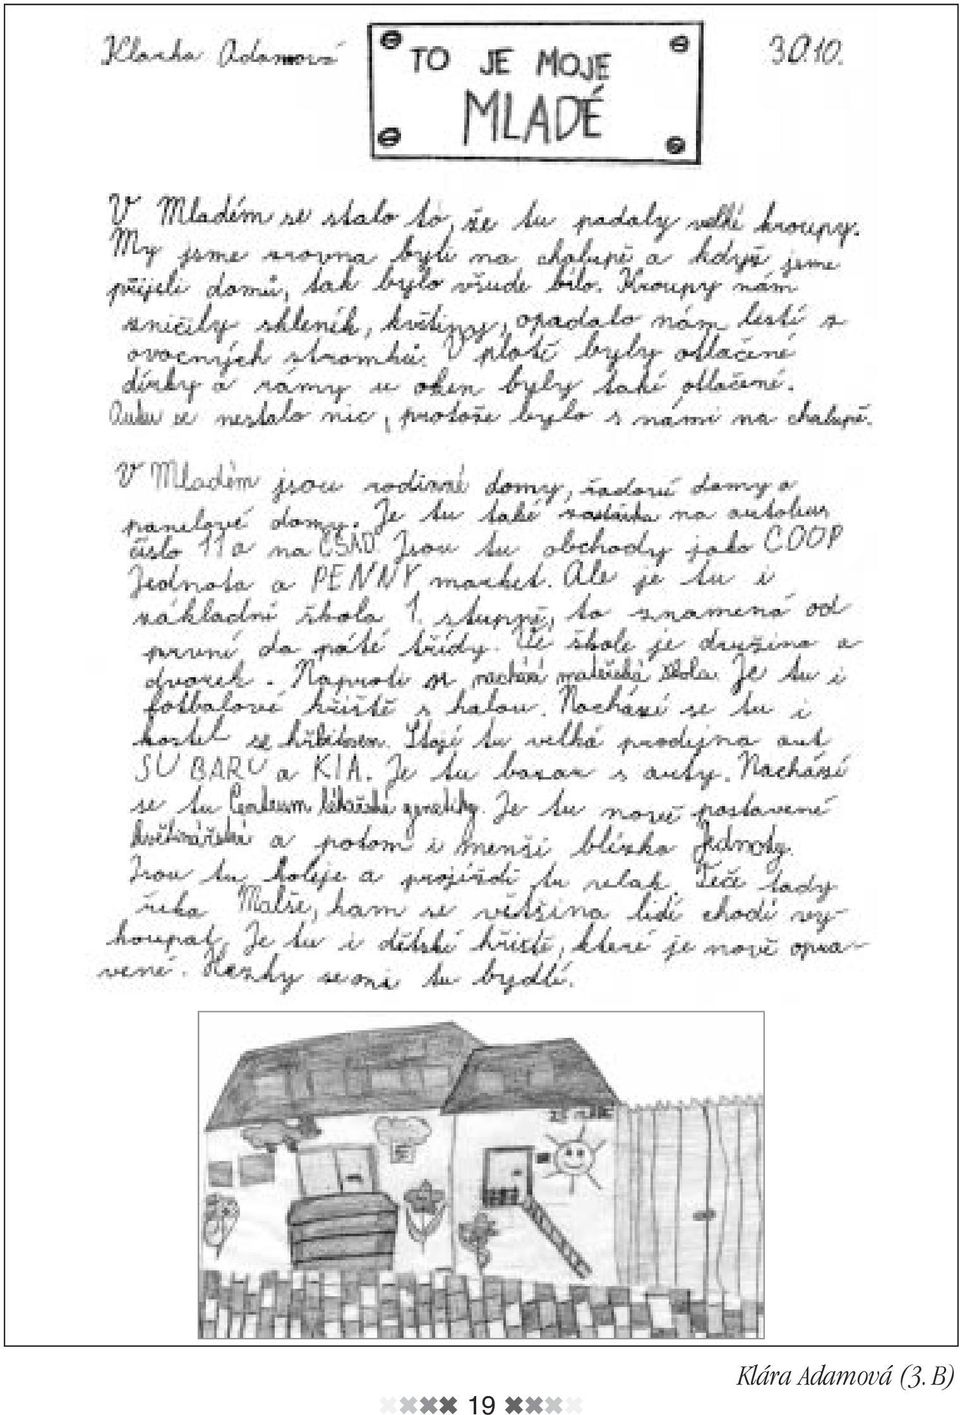 Klárka Adamová
TO JE MOJE
MLADÉ
30.10.
V Mladém se stalo to, že tu padaly velké kroupy.
My jsme zrovna byli na chalupě a když jsme
přijeli domů, tak bylo všude bílo. Kroupy nám
zničily skleník, květiny, opadalo nám listí z
ovocných stromků. V plotě byly otlačené
dírky a rámy u oken byly také otlačené.
Autu se nestalo nic, protože bylo s námi na chalupě.
V Mladém jsou rodinné domy, řadové domy a
panelové domy. Je tu také zastávka na autobus
číslo 11 a na ČSAD. Jsou tu obchody jako COOP
Jednota a PENNY market. Ale je tu i
základní škola 1. stupně, to znamená od
první do páté třídy. Ve škole je družina a
dvorek. Naproti se nachází mateřská škola. Je tu i
fotbalové hřiště s halou. Nachází se tu i
kostel se hřbitovem. Stojí tu velká prodejna aut
SUBARU a KIA. Je tu bazar s auty. Nachází
se tu Centrum lékařské genetiky. Je tu nově postavené
květinářství a potom i menší blízko Jednoty.
Jsou tu koleje a projíždí tu vlak. Teče tady
řeka Malše, kam se většina lidí chodí vy-
koupat. Je tu i dětské hřiště, které je nově opra-
vené. Hezky se mi tu bydlí.
Klára Adamová (3. B)
19